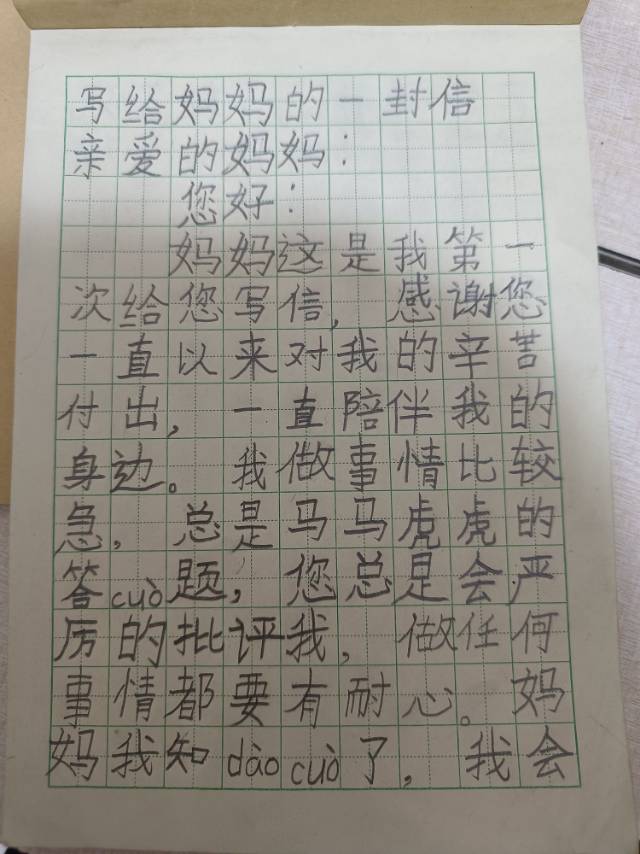 写给妈妈的一封信
亲爱的妈妈：
您好：
妈妈这是我第一
次给您写信，感谢您
一直以来对我的辛苦
付出，一直陪伴我的
身边。我做事情比较
急，总是马马虎虎的
答cuò题，您总是会严
厉的批评我，做任何
事情都要有耐心。妈
妈我知dàocuò了，我会